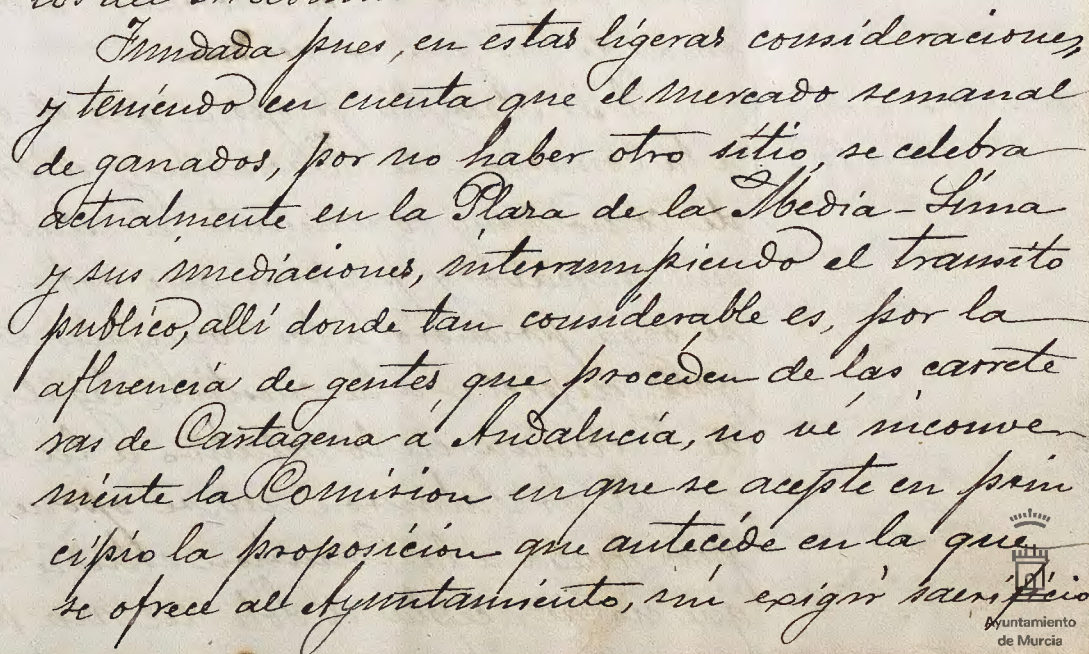 Fundada pues, en estas ligeras consideraciones,
y teniendo en cuenta que el mercado semanal
de ganados, por no haber otro sitio, se celebra
actualmente en la Plaza de la Media-Luna
y sus inmediaciones, interrumpiendo el transito
publico, allí donde tan considerable es, por la
afluencia de gentes, que proceden de las carrete
ras de Cartagena á Andalucía, no vé inconve
niente la Comision en que se acepte en prin
cipio la proposicion que antecede en la que
se ofrece al Ayuntamiento, sin exigir sacrificio
Ayuntamiento
de Murcia